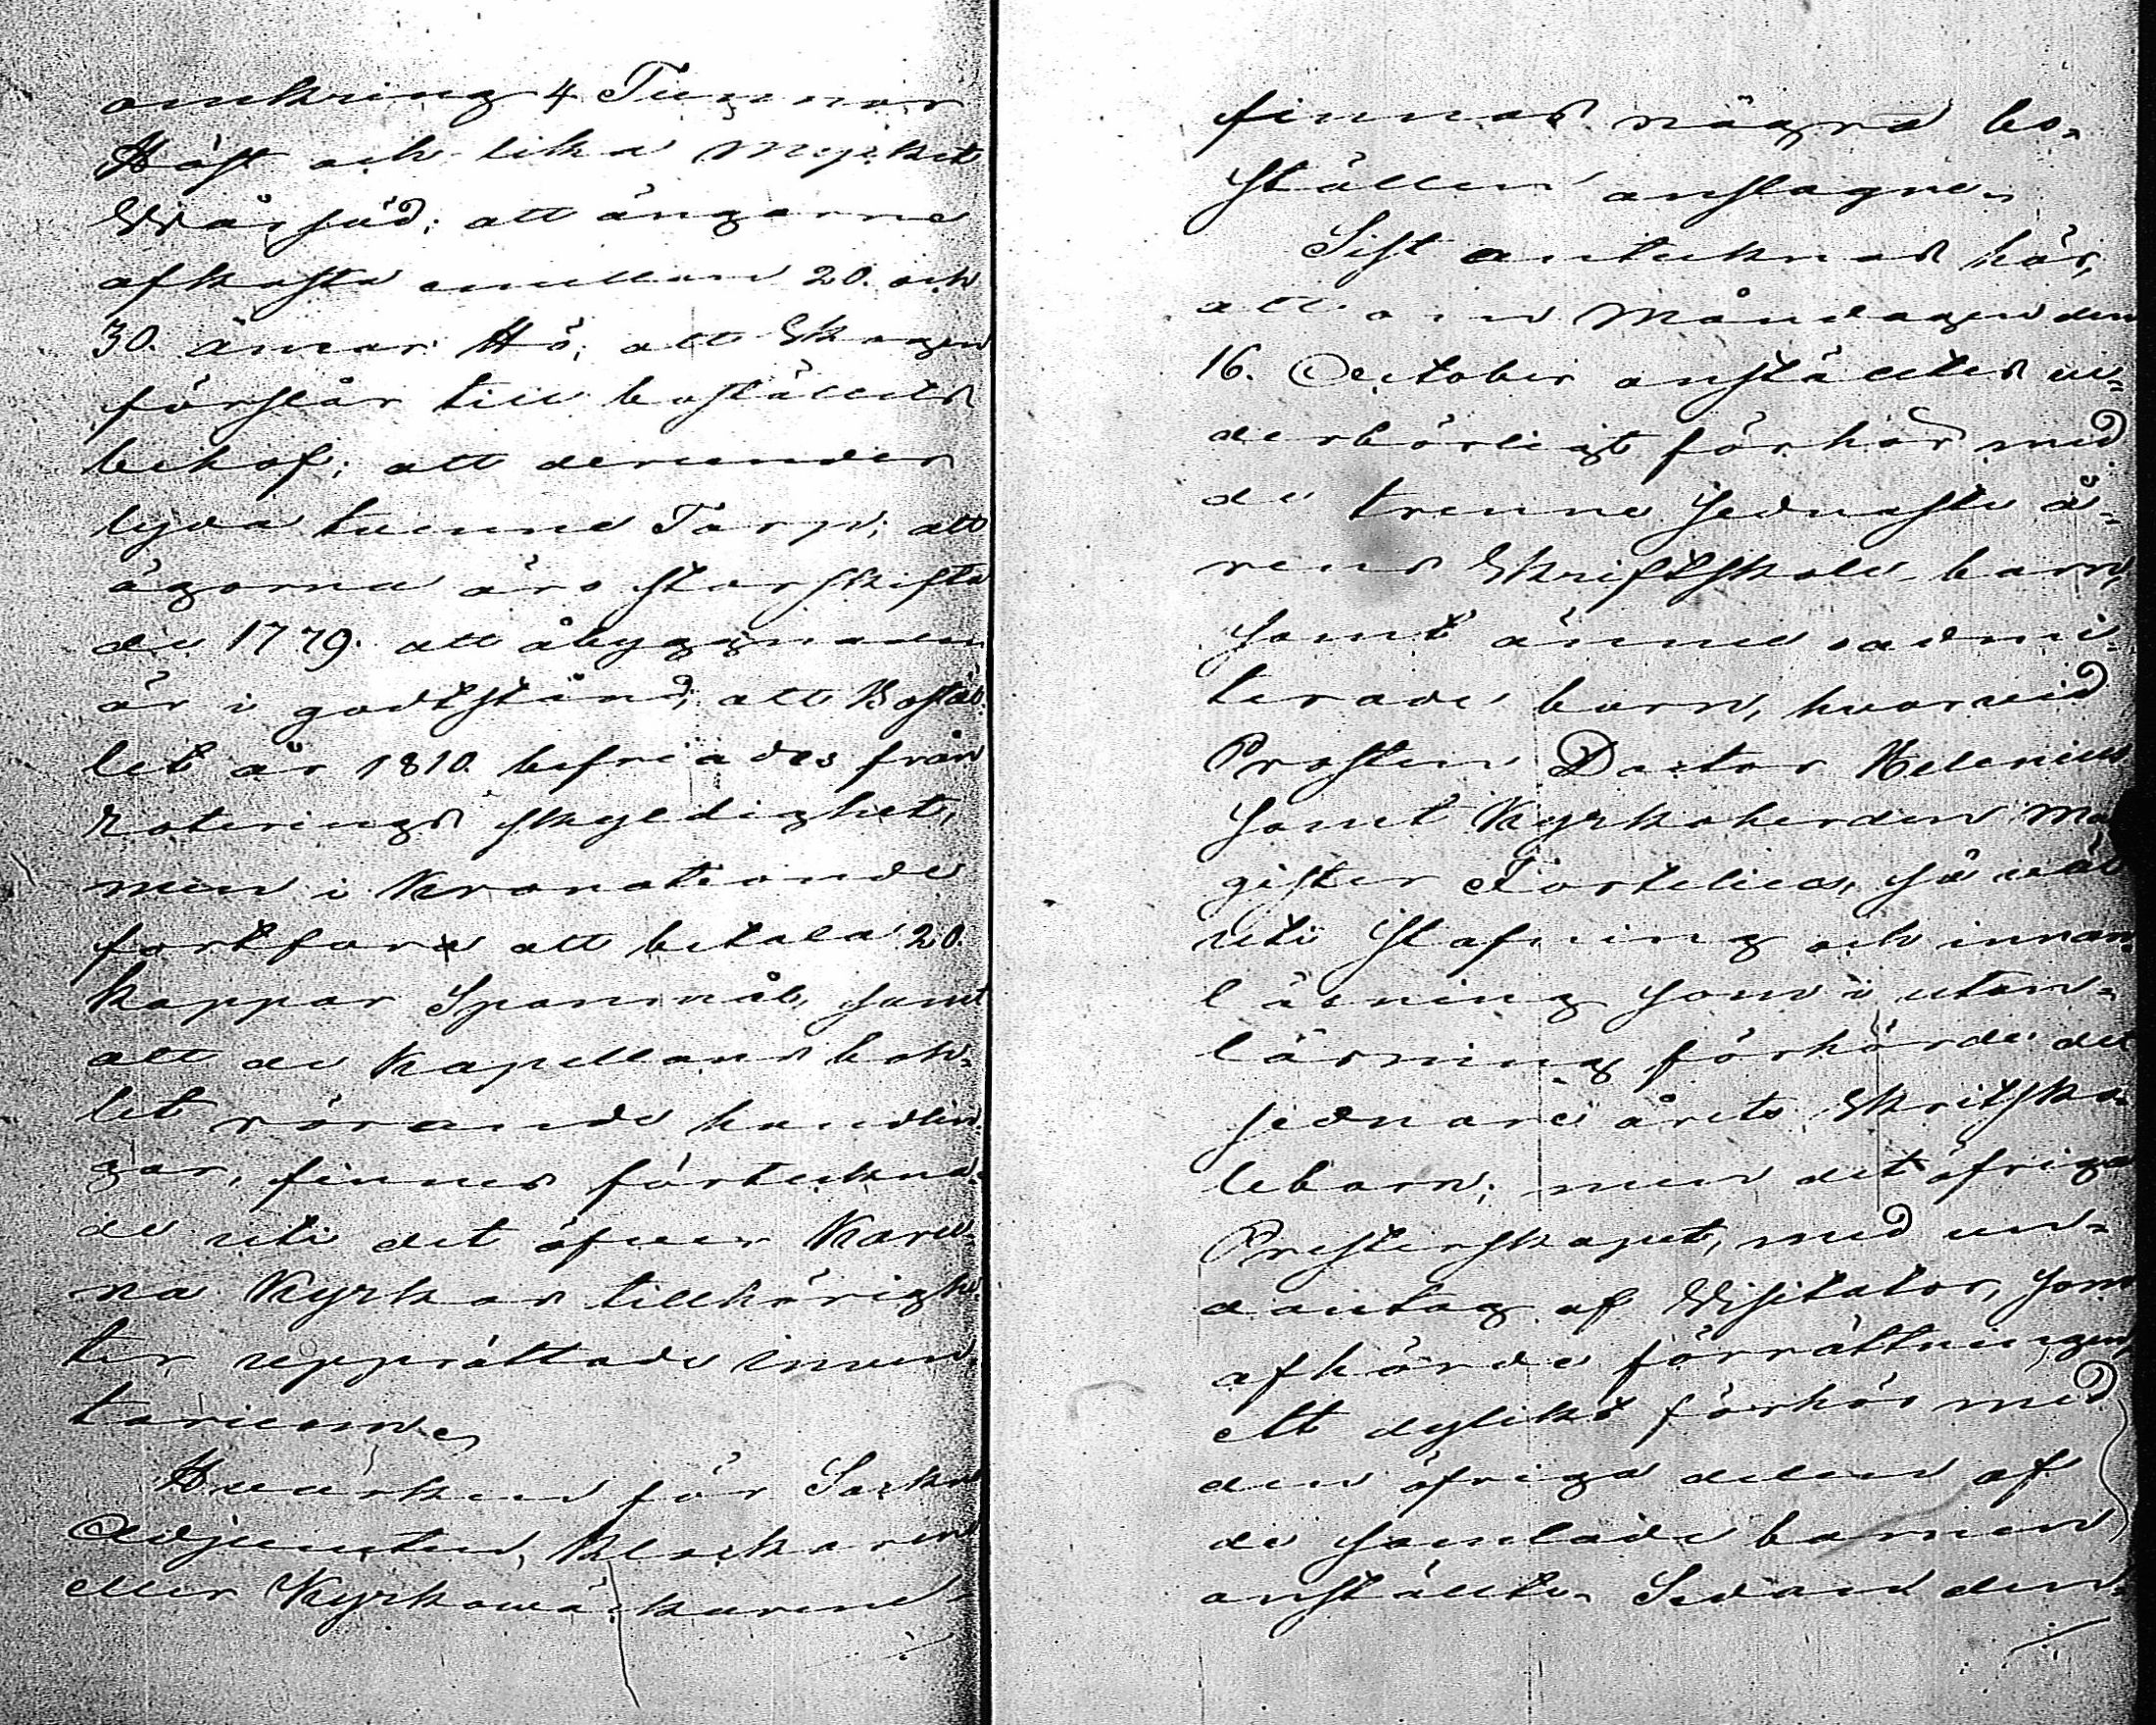 omkring 4 Tunnor
Höst och lika mycket
Wårsäd; att ängarne
afkasta emellan 20. och
30. åmar Hö; att Skogen
förslår till boställets
behof; att derunder
lyda tvenne Torp; att
ägorna äro storskifta
de 1779. att åbyggnaden
är i godtstånd; att Bostäl¬
let är 1810. befriades från
Roterings skyldighet,
men i Kronotionde
fortfara att betala 20.
kappar Spannmål, samt
att de Kapellans bohl¬
let rörande handlin¬
gar, finnes förteckna¬
de uti det öfver Karu¬
na Kyrkas tillhörighe
ter upprättade Inven¬
tarium.
Hwarken för Sockne
Adjuncten, Klockaren
eller Kyrkowäcktarene
finnas några bo¬
ställen anslagne.
Sist antecknas här,
att om Måndagen den
16. October anställtes ve¬
derbörligt förhör med
de trenne sednaste å¬
rens Skriftskole-barn,
samt ännu oadmi¬
terade barn, hvarvid
Prosten Doctor Helenius
samt Kyrkoherden Ma
gister Tortelius, så wäl
uti stafning och innan¬
läsning som i utan¬
läsning förhörde det
sednare årets Skriftsko¬
lebarn; men det öfriga
Presterskapet, med un¬
dantag af Visitator, som
afhörde förrättningen,
ett dylikt förhör med
den öfriga delen af
de samlade barnen
anställte. Sedan den¬